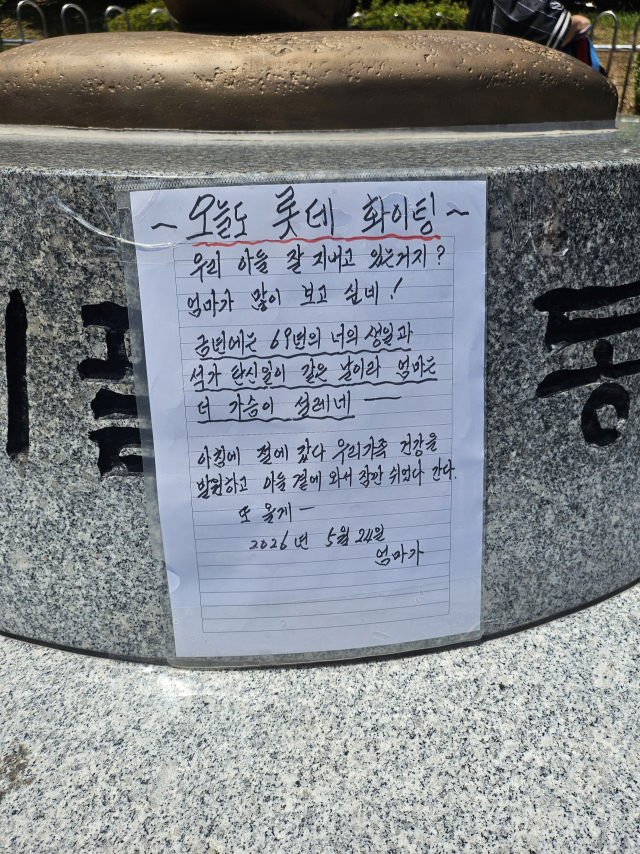 ~ 오늘도 롯데 화이팅 ~
우리 아들 잘 지내고 있는거지?
엄마가 많이 보고 싶네!
금번에는 69번의 너의 생일과
석가 탄신일이 같은 날이라 엄마는
더 가슴이 설레네 —
아침에 절에 갔다 우리가족 건강을
발원하고 아들 곁에 와서 잠깐 쉬었다 간다.
또 올게 —
2026년 5월 24일
엄마가
동